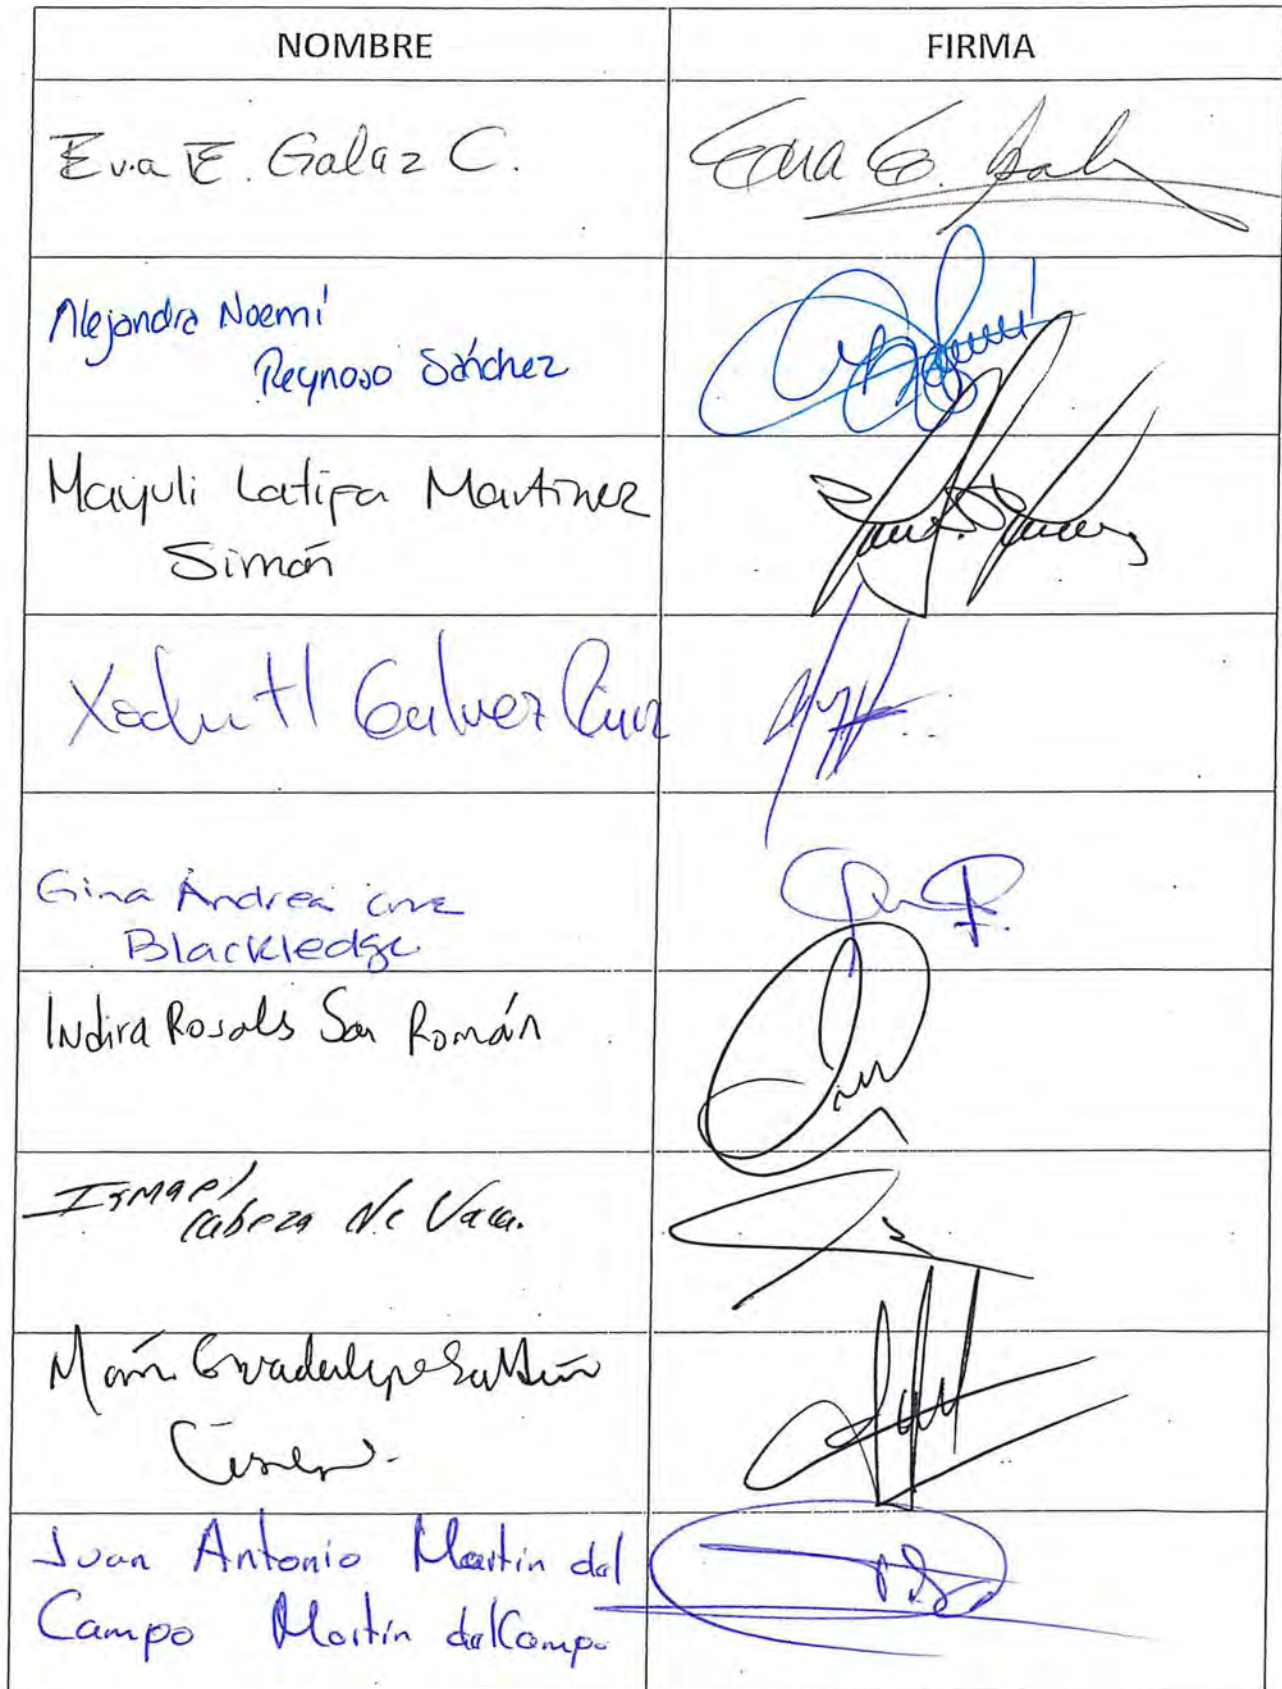 NOMBRE FIRMA
Eva E. Galaz C. Eva E. Gal
Alejandra Noemí
Reynoso Sánchez
Mayuli Latifa Martínez
Simón
Xochitl Galvez Ruiz
Gina Andrea Cruz
Blackledge
Indira Rosales San Román
Ismael
Cabeza de Vaca.
María Guadalupe Saldaña
Cisneros
Juan Antonio Martin del
Campo Martin del Campo